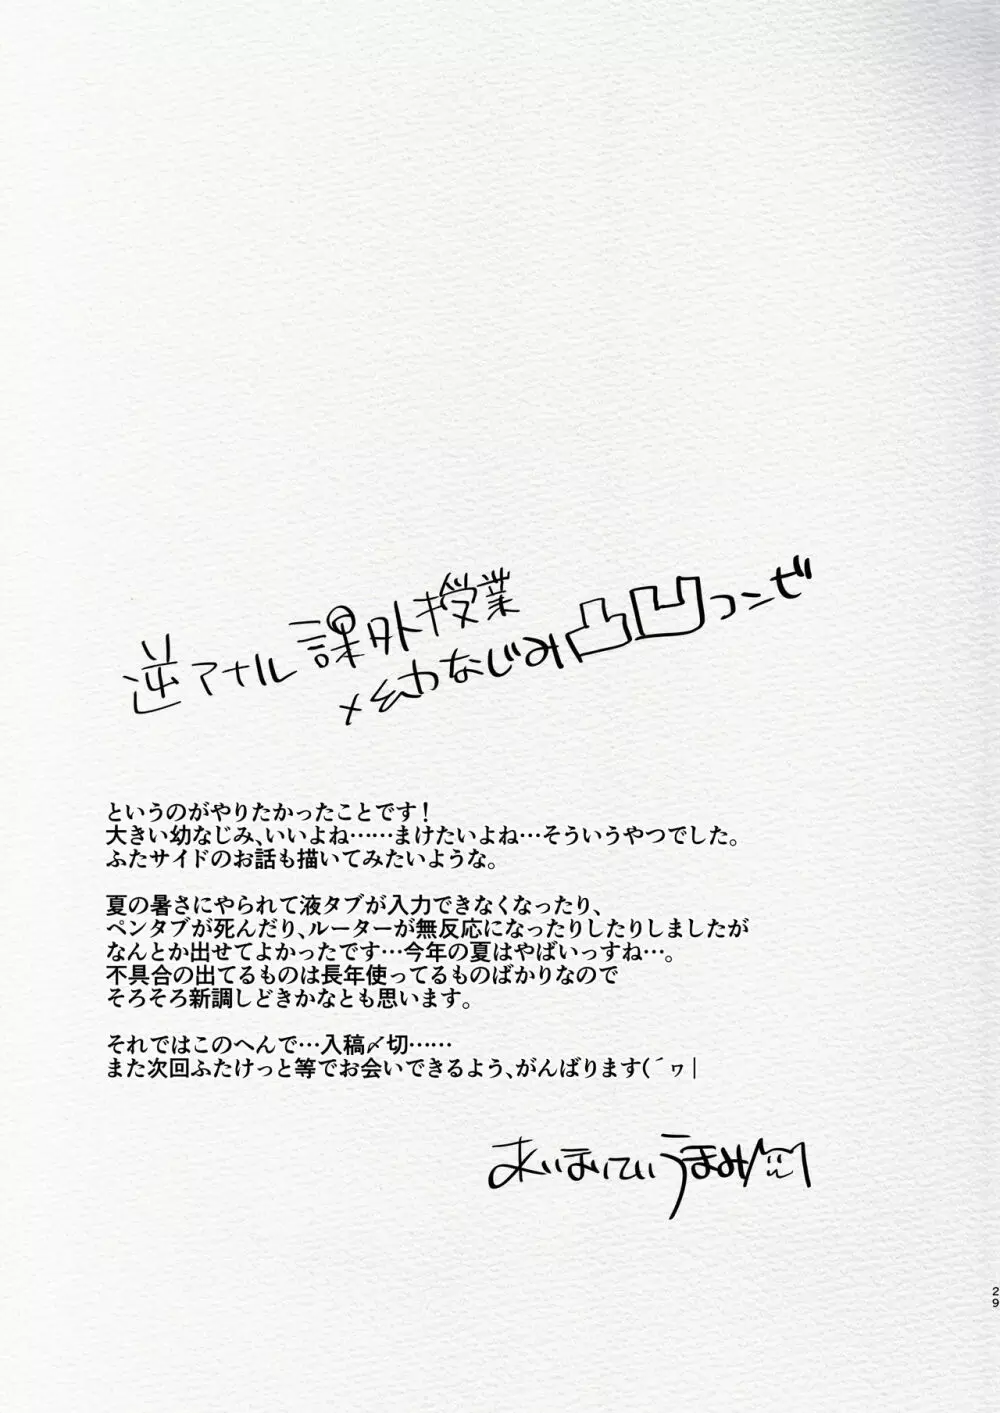 逆アナル課外授業
×幼なじみ凸凹コンビ
というのがやりたかったことです！
大きい幼なじみ、いいよね……まけたいよね…そういうやつでした。
ふたサイドのお話も描いてみたいような。
夏の暑さにやられて液タブが入力できなくなったり、
ペンタブが死んだり、ルーターが無反応になったりしたりしましたが
なんとか出せてよかったです…今年の夏はやばいっすね…。
不具合の出てるものは長年使ってるものばかりなので
そろそろ新調しどきかなとも思います。
それではこのへんで…入稿〆切……
また次回ふたけっと等でお会いできるよう、がんばります(´ヮ|
あいまいてぃうまみ
29